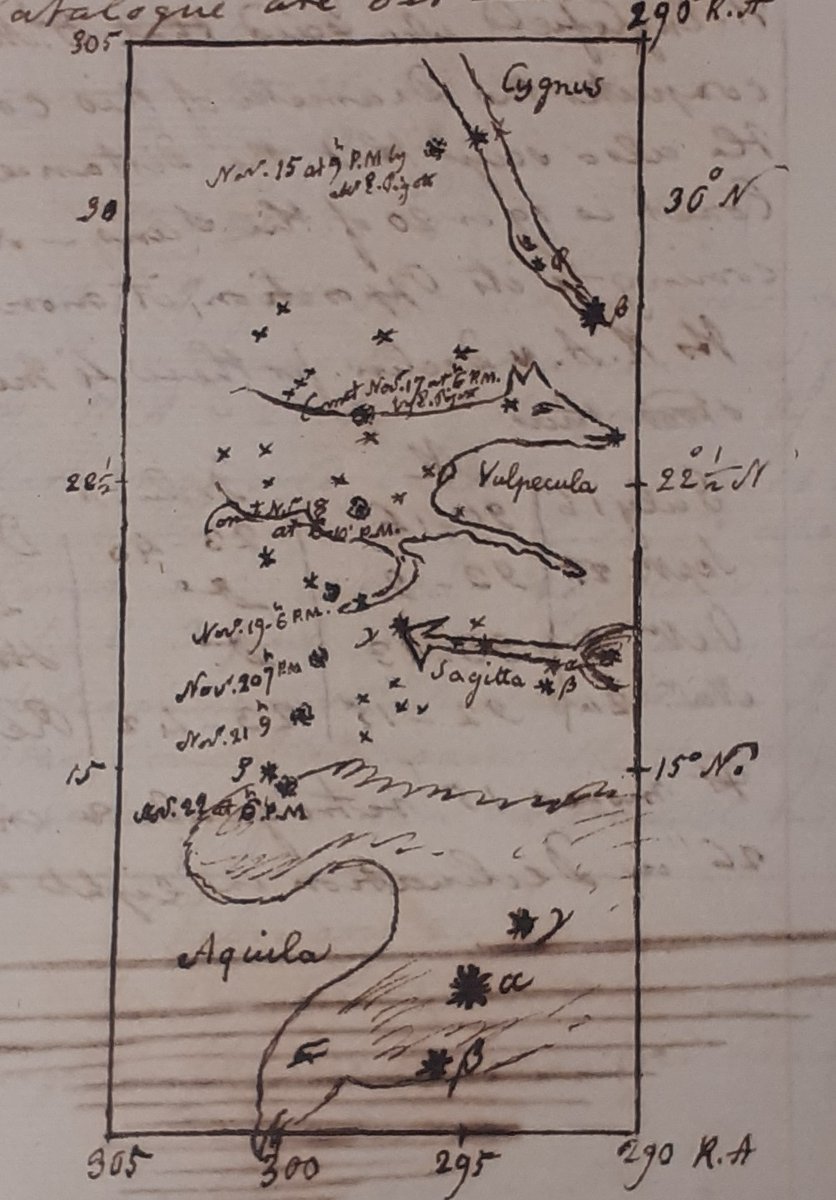 atalogue are
305
290 R.A
Cygnus
Nov. 15 at 9h P.M by
Mr E. Pigott
30
30° N
β
Comet Nov. 17 at 6h P.M.
by E. Pigott
22½
22°½ N
Vulpecula
Comet Nov. 18
at P.M.
Nov. 19. 6h P.M.
γ
Sagitta
α
β
Nov. 20 9h P.M
Nov. 21 9h
15
15° No.
ρ
Nov. 22 at 6h P.M
Aquila
γ
α
β
305
300
295
290 R.A